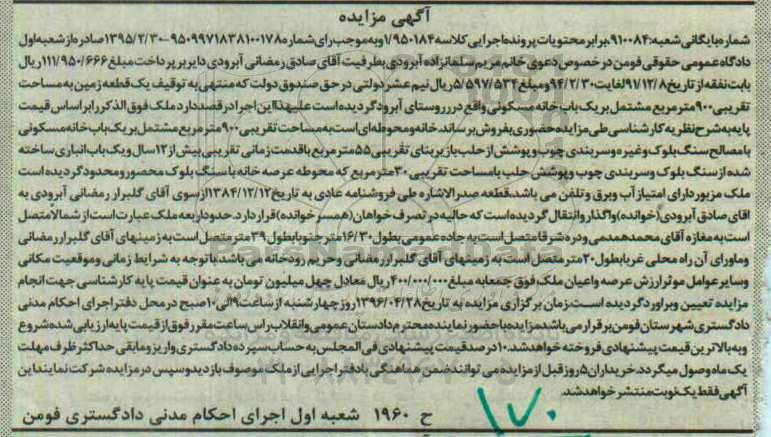 آگهی مزایده
شماره بایگانی شعبه: ۹۱۰۰۸۴، برابر محتویات پرونده اجرایی کلاسه ۱/۹۵۰۱۸۴ و به موجب رای شماره ۹۵۰۹۹۷۱۸۳۸۱۰۰۱۷۸-۱۳۹۵/۲/۳۰ صادره از شعبه اول
دادگاه عمومی حقوقی فومن در خصوص دعوی خانم مریم سلمانزاده آبرودی بطرفیت آقای صادق رمضانی آبرودی دایر بر پرداخت مبلغ ۱۱۱/۹۵۰/۶۶۶ ریال
بابت نفقه از تاریخ ۹۱/۱۲/۸ لغایت ۹۴/۲/۳۰ و مبلغ ۵/۵۹۷/۵۳۴ ریال نیم عشر دولتی در حق صندوق دولت که منتهی به توقیف یک قطعه زمین به مساحت
تقریبی ۹۰۰ متر مربع مشتمل بر یک باب خانه مسکونی واقع در روستای آبرود گردیده است علیهذا این اجرا در قصد دارد ملک فوق الذکر را بر اساس قیمت
پایه به شرح نظریه کارشناسی طی مزایده حضوری بفروش برساند. خانه و محوطه ای است به مساحت تقریبی ۹۰۰ متر مربع مشتمل بر یک باب خانه مسکونی
با مصالح سنگ بلوک و غیره و سربندی چوب و پوشش از حلب با زیربنای تقریبی ۵۵ متر مربع با قدمت زمانی تقریبی بیش از ۱۲ سال و یک باب انباری ساخته
شده از سنگ بلوک و سربندی چوب و پوشش حلب با مساحت تقریبی ۳۰ متر مربع که محوطه عرصه خانه با سنگ بلوک محصور و محدود گردیده است
ملک مزبور دارای امتیاز آب و برق و تلفن می باشد. قطعه صدرالاشاره طی فروشنامه عادی به تاریخ ۱۳۸۴/۱۲/۱۲ از سوی آقای گلبرار رمضانی آبرودی به
اقای صادق آبرودی (خوانده) واگذار و انتقال گردیده است که حالیه در تصرف خواهان (همسر خوانده) قرار دارد. حدود اربعه ملک عبارت است از شمالا متصل
است به مغازه آقای محمد همدمی و دره شرقا متصل است به جاده عمومی بطول ۱۶/۳۰ متر جنوبا بطول ۳۹ متر متصل است به زمینهای آقای گلبرار رمضانی
و ماورای آن راه محلی غربا بطول ۲۰ متر متصل است به زمینهای آقای گلبرار رمضانی و حریم رودخانه می باشد با توجه به شرایط زمانی و موقعیت مکانی
و سایر عوامل موثر ارزش عرصه و اعیان ملک فوق جمعا به مبلغ ۴۰۰/۰۰۰/۰۰۰ ریال معادل چهل میلیون تومان به عنوان قیمت پایه کارشناسی جهت انجام
مزایده تعیین و براورد گردیده است. زمان برگزاری مزایده به تاریخ ۱۳۹۶/۰۴/۲۸ روز چهارشنبه از ساعت ۹ الی ۱۰ صبح در محل دفتر اجرای احکام مدنی
دادگستری شهرستان فومن برقرار می باشد مزایده با حضور نماینده محترم دادستان عمومی و انقلاب راس ساعت مقرر فوق از قیمت پایه ارزیابی شده شروع
و به بالاترین قیمت پیشنهادی فروخته خواهد شد. ۱۰ درصد قیمت پیشنهادی فی المجلس به حساب سپرده دادگستری واریز و مابقی حداکثر ظرف مهلت
یک ماه وصول میگردد. خریداران ۵ روز قبل از مزایده می توانند ضمن هماهنگی با دفتر اجرایی از ملک موصوف بازدید و سپس در مزایده شرکت نمایند این
آگهی فقط یک نوبت منتشر خواهد شد.
ح ۱۹۶۰ شعبه اول اجرای احکام مدنی دادگستری فومن
۱۷۰